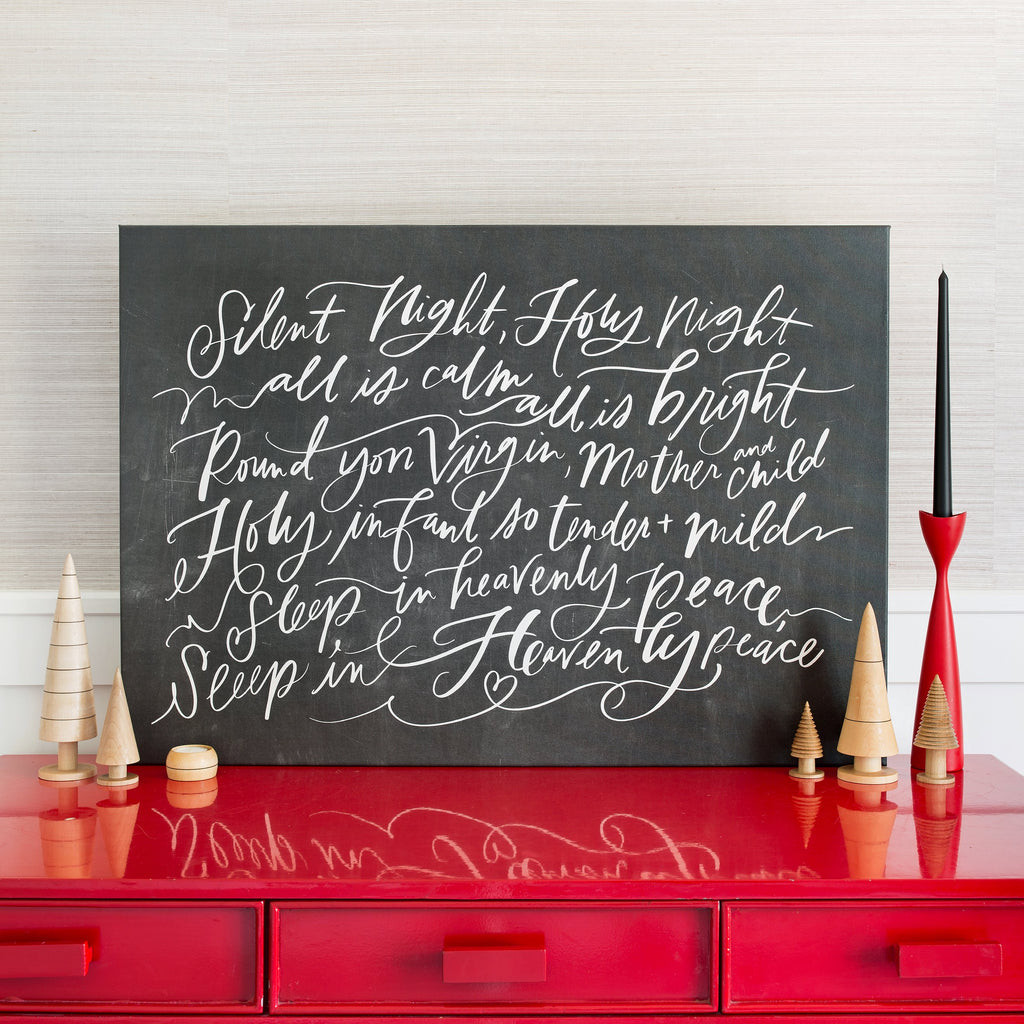 Silent Night, Holy Night
all is calm all is bright
Round yon Virgin, Mother and child
Holy infant so tender + mild
Sleep in heavenly peace,
Sleep in Heavenly peace